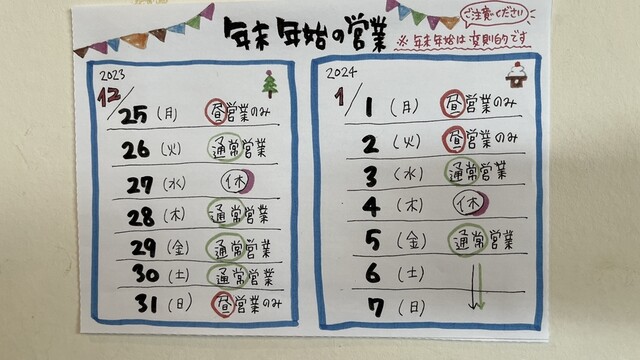 年末年始の営業
ご注意ください
※年末年始は変則的です
2023
12/
25 (月) 昼営業のみ
26 (火) 通常営業
27 (水) 休
28 (木) 通常営業
29 (金) 通常営業
30 (土) 通常営業
31 (日) 昼営業のみ
2024
1/
1 (月) 昼営業のみ
2 (火) 昼営業のみ
3 (水) 通常営業
4 (木) 休
5 (金) 通常営業
6 (土)
7 (日)